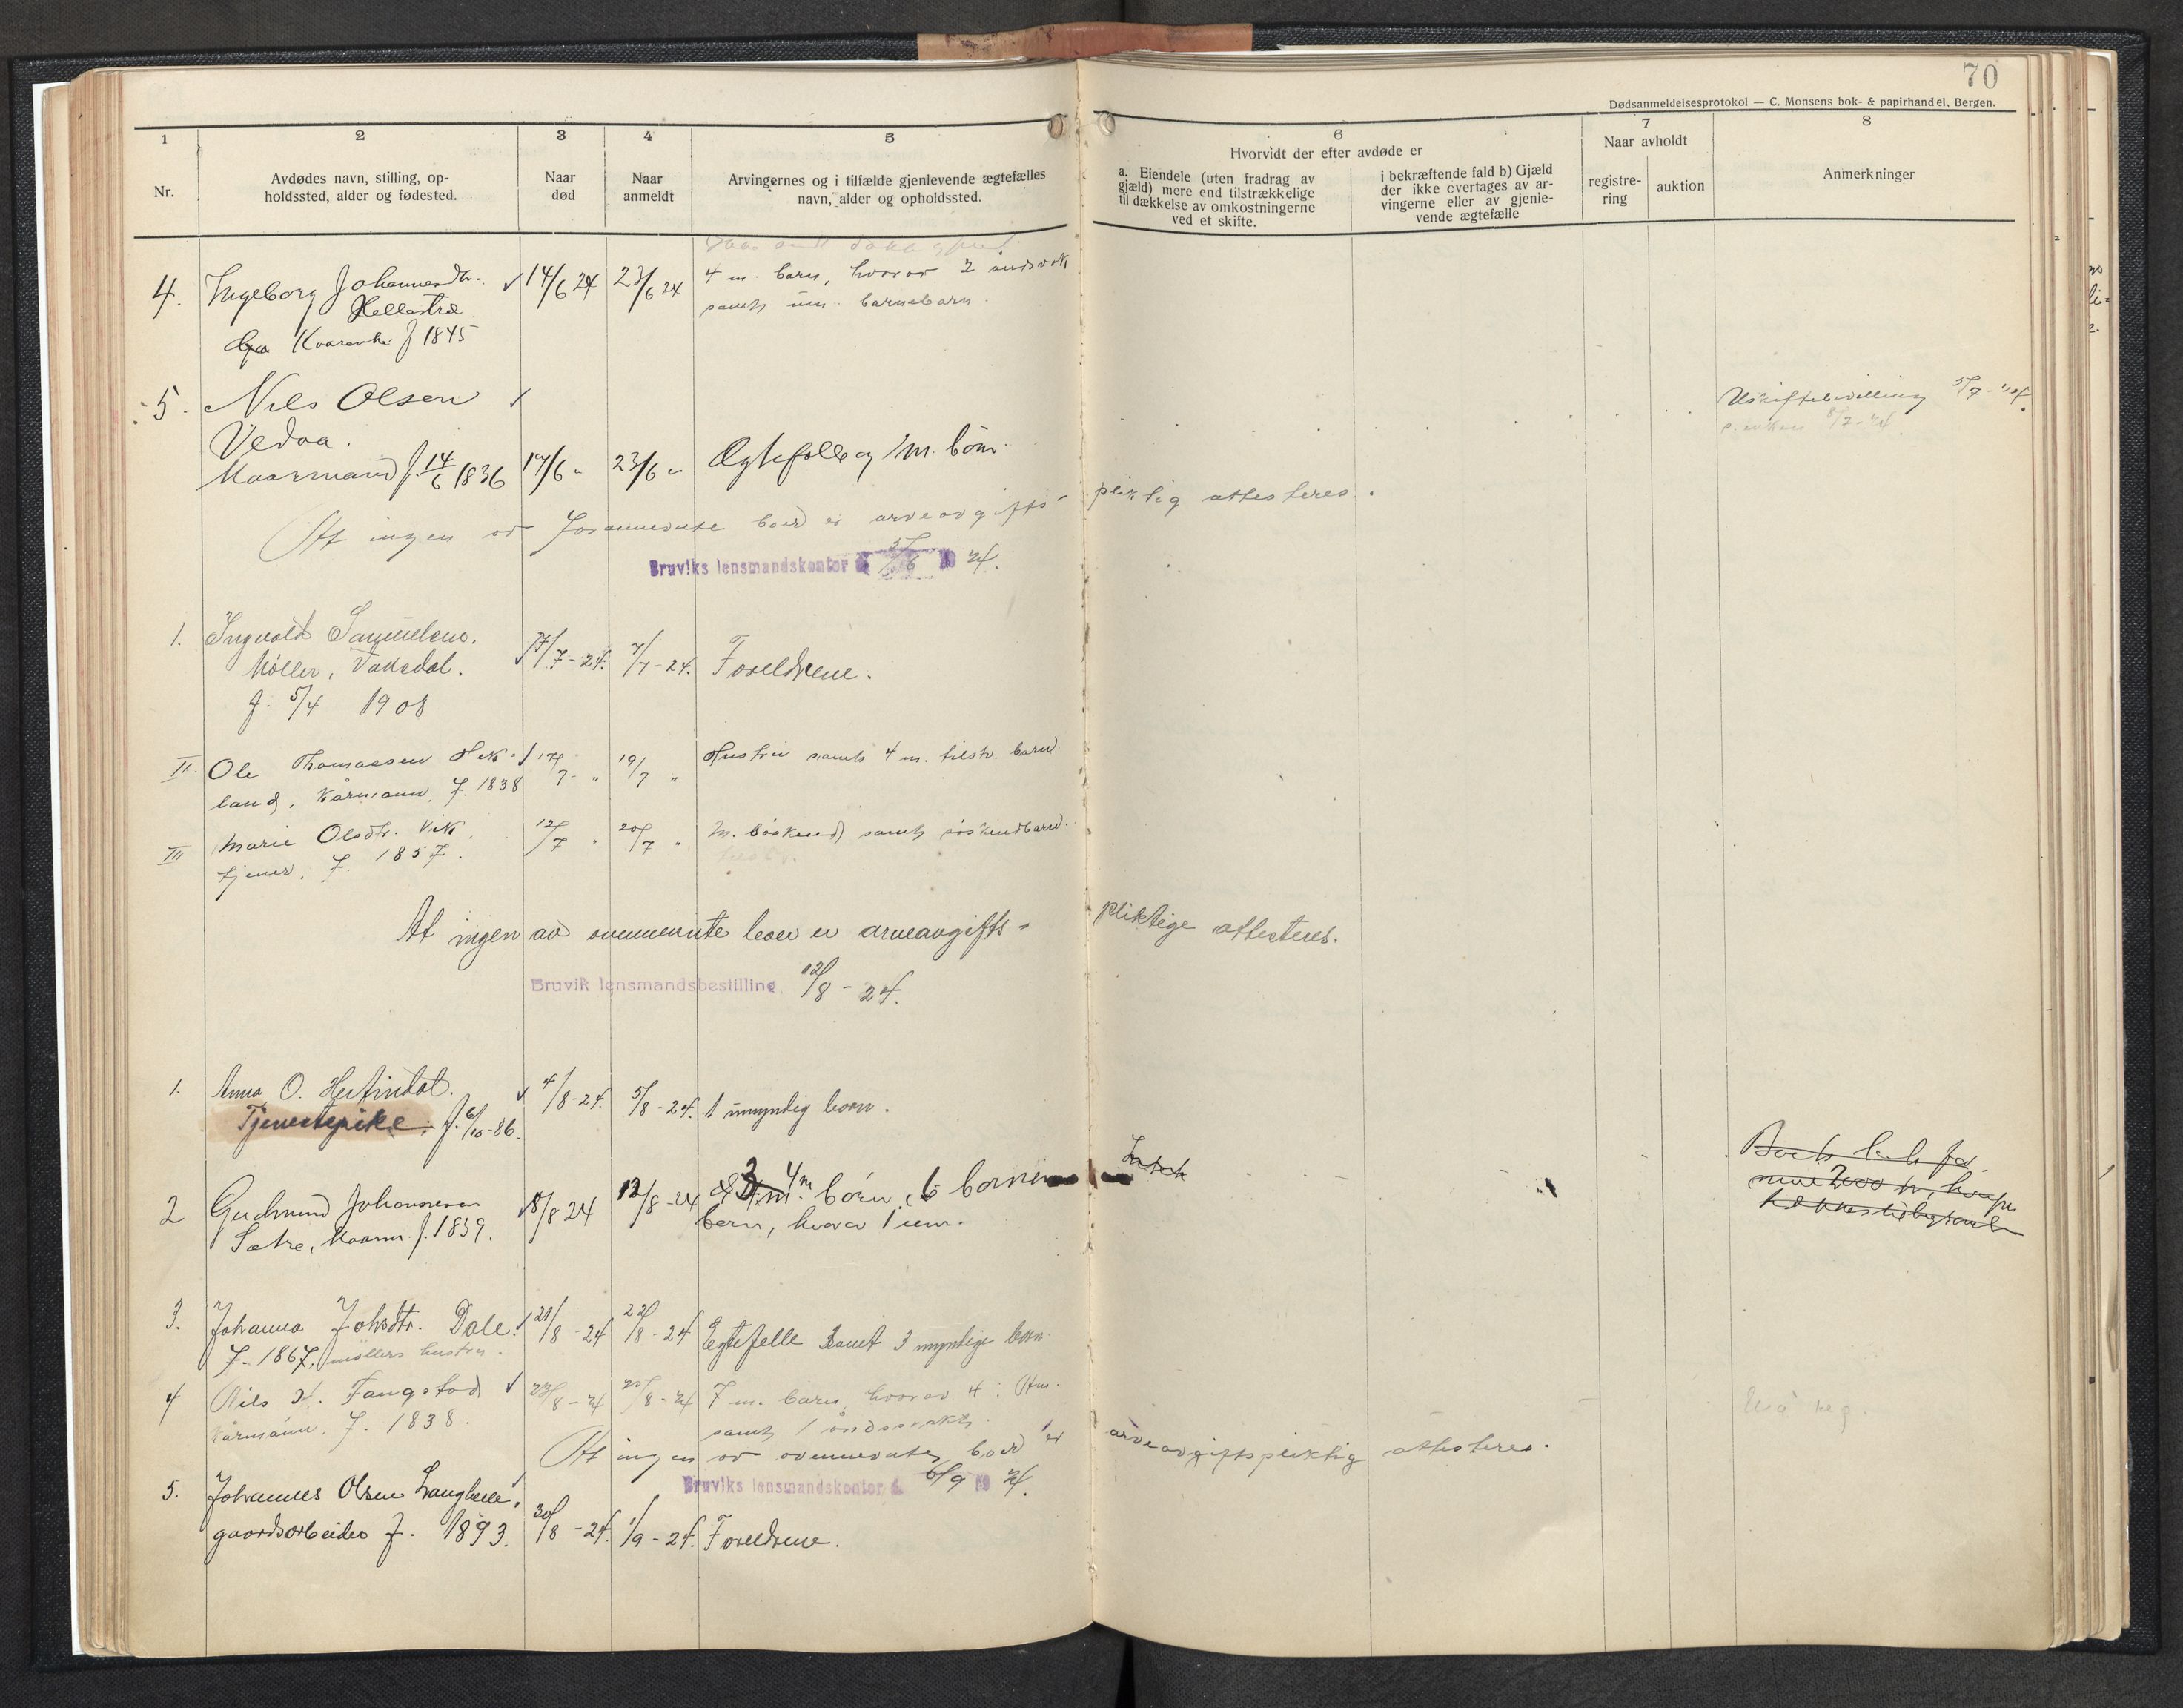 70
Dødsanmeldelsesprotokol — C. Monsens bok- & papirhandel, Bergen.
1 2 3 4 5 6 7 8
Nr.
Avdødes navn, stilling, op-
holdssted, alder og fødested.
Naar
død
Naar
anmeldt
Arvingernes og i tilfælde gjenlevende ægtefælles
navn, alder og opholdssted.
Hvorvidt der efter avdøde er
a. Eiendele (uten fradrag av
gjæld) mere end tilstrækkelige
til dækkelse av omkostningerne
ved et skifte.
i bekræftende fald b) Gjæld
der ikke overtages av ar-
vingerne eller av gjenle-
vende ægtefælle
Naar avholdt
registre-
ring
auktion
Anmerkninger
4. Ingeborg Johannesdtr. 14/6 24 23/6 24 4 m. barn, hvorav 2
Hellestræ samt um. barnebarn.
f 1845
5. Nils Olsen Uskiftebevilling 5/7-24.
Vedaa.
Kaarmand f. 14/6 1836 17/6 " 23/6 " Ægtefolle og m. børn
At ingen av forannevnte boer er arveavgifts- pliktig attesteres.
Bruviks lensmandskontor 5/6 19 24.
1. Ingvald Samuelsen. 7/7-24. 7/7-24. Foreldrene.
Møller, Vaksdal.
f. 5/4 1908
II. Ole Thomassen Hek- 17/7 " 19/7 " Hustru samt 4 m. tilst. barn
land, kårmann, f. 1838
III Marie Olsdtr. Vik, 12/7 " 20/7 " M. søskend samt søskendbarn.
tjener, f. 1857.
At ingen av ovennevnte boer er arveavgifts- pliktige attesteres.
Bruvik lensmandsbestilling 12/8-24.
1. Anna O. Herfindal. 4/8-24. 5/8-24. 1 umyndig barn.
Tjenestepike. f. 6/10-86.
2 Gudmund Johannessen 8/8 24 12/8-24 4 m børn, 6
Sætre, Kaarm. f. 1839. barn, hvorav 1 um.
3. Johanna Johsdtr. Dale. 21/8-24 22/8-24 Egtefelle samt 3 myndige barn
f. 1867, møllers hustru.
4 Nils Fangstad 23/8-24 25/8-24 7 m. barn, hvorav 4 i Am.
kårmann. f. 1838. samt 1
At ingen av ovennevnte boer er arveavgiftspliktig attesteres.
Bruviks lensmandskontor 6/9 19 24.
5. Johannes Olsen Langhelle,
gaardsarbeider f. 1893. 30/8-24. 1/9-24. Foreldrene.